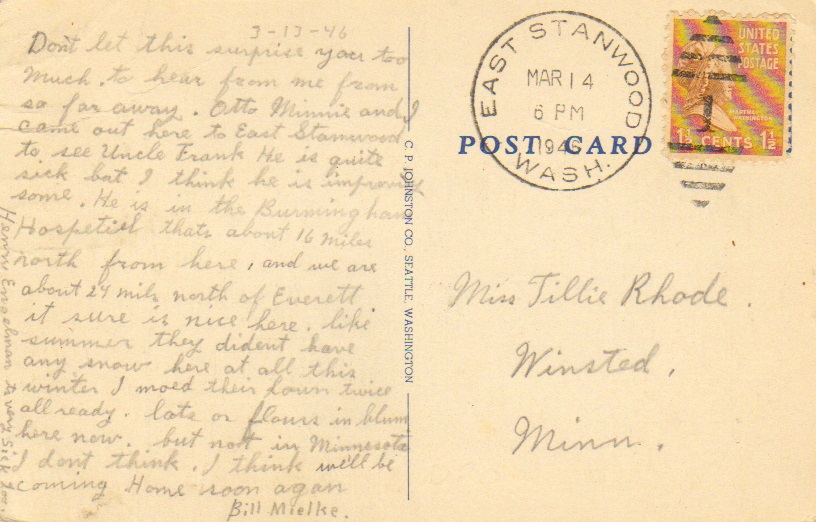 3-13-46
Dont let this surprise you too
Much. to hear from me from
so far away. Otto Minnie and I
came out here to East Stanwood
to see Uncle Frank He is quite
sick but I think he is improving
some. He is in the Burmingham
Hospetill thats about 16 miles
north from here, and we are
about 24 mils north of Everett
it sure is nice here. like
summer they dident have
any snow here at all this
winter I moed their lawn twice
all ready. lots or flours in blum
here now. but not in Minnesota
I dont think. I think we'll be
coming Home soon agan
Bill Mielke.
Henry Engelman is very Sick too.
C. P. JOHNSTON CO., SEATTLE, WASHINGTON
EAST STANWOOD
MAR 14
6 PM
1946
WASH.
POST CARD
UNITED
STATES
POSTAGE
MARTHA
WASHINGTON
1½ CENTS 1½
1
Miss Tillie Rhode.
Winsted,
Minn.